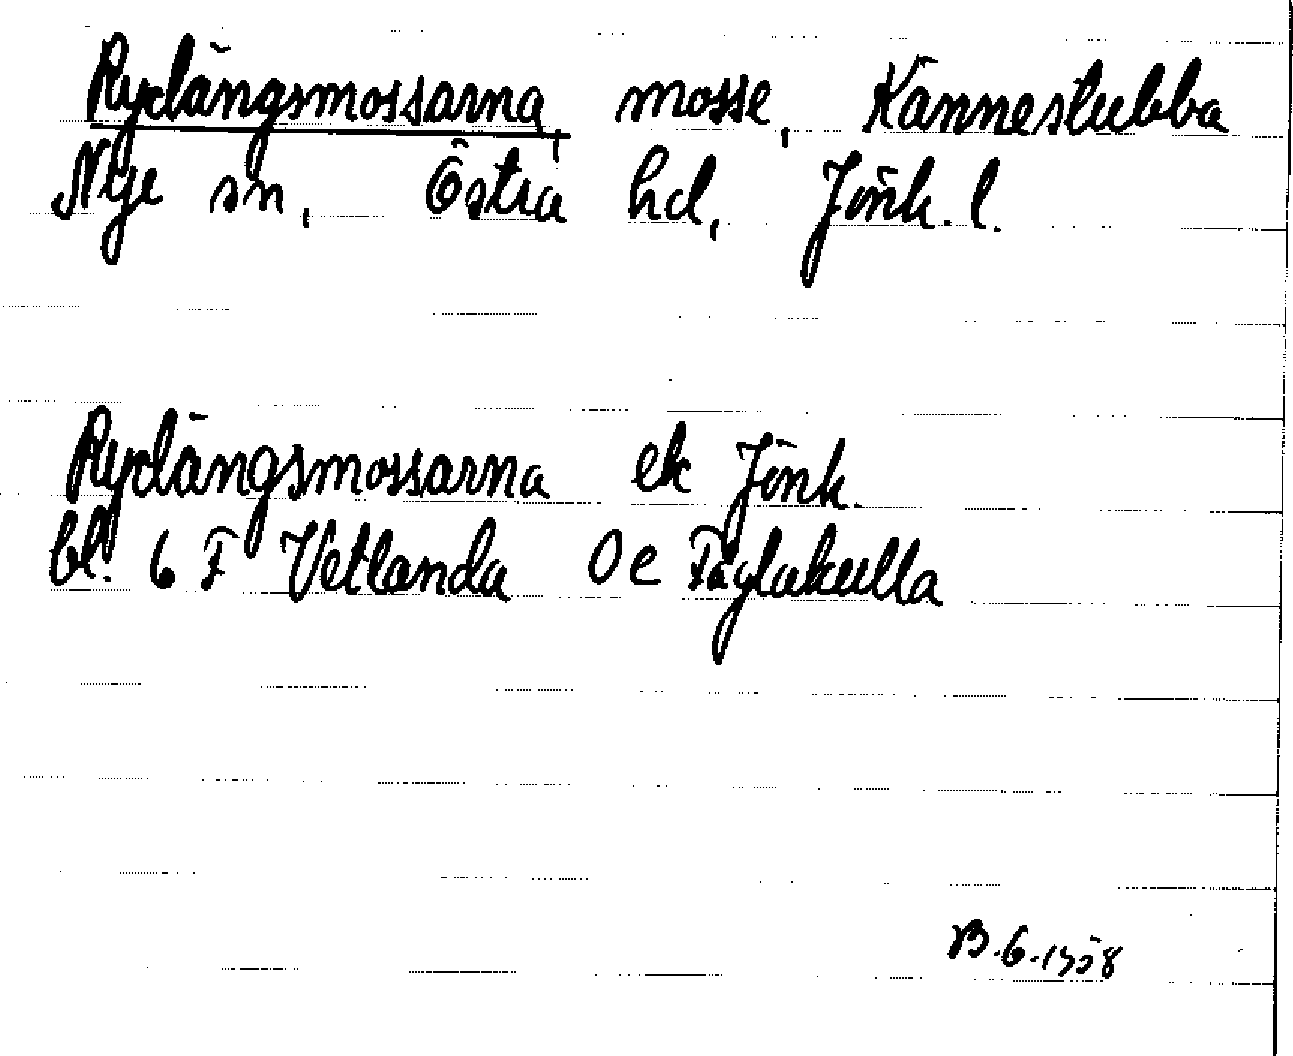 Rydängsmossarna, mosse, Kännestubba
Nye sn, Östra hd, Jönk. l.
Rydängsmossarna ek Jönk.
bl. 6 F Vetlanda 0 e Fåglakulla
B. 6. 1958